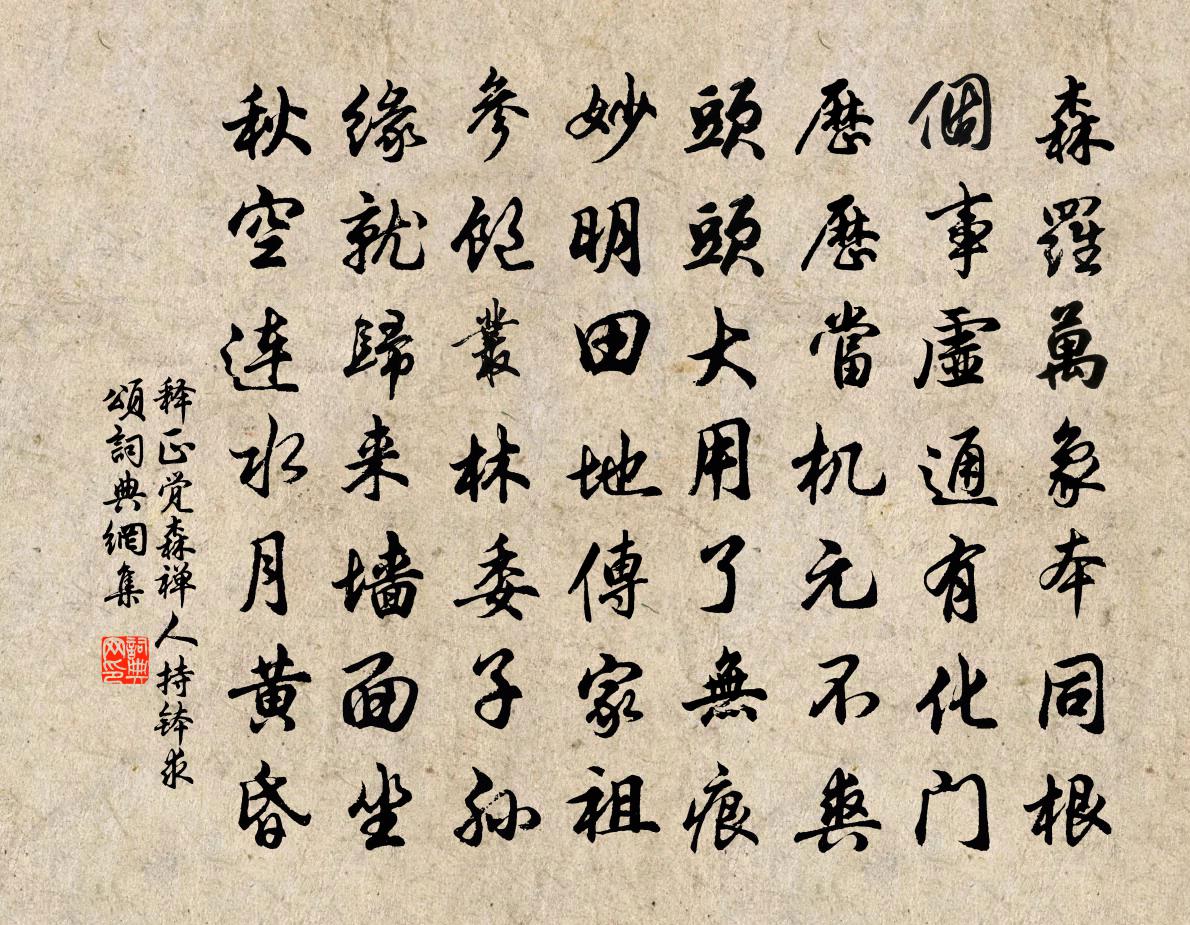 森羅萬象本同根
個事虛通有化门
歷歷當机元不爽
頭頭大用了無痕
妙明田地傳家祖
參飽叢林委子孫
緣就歸来墙面坐
秋空连水月黄昏
释正觉森禅人持钵求
頌詞典網集
詞典
网印